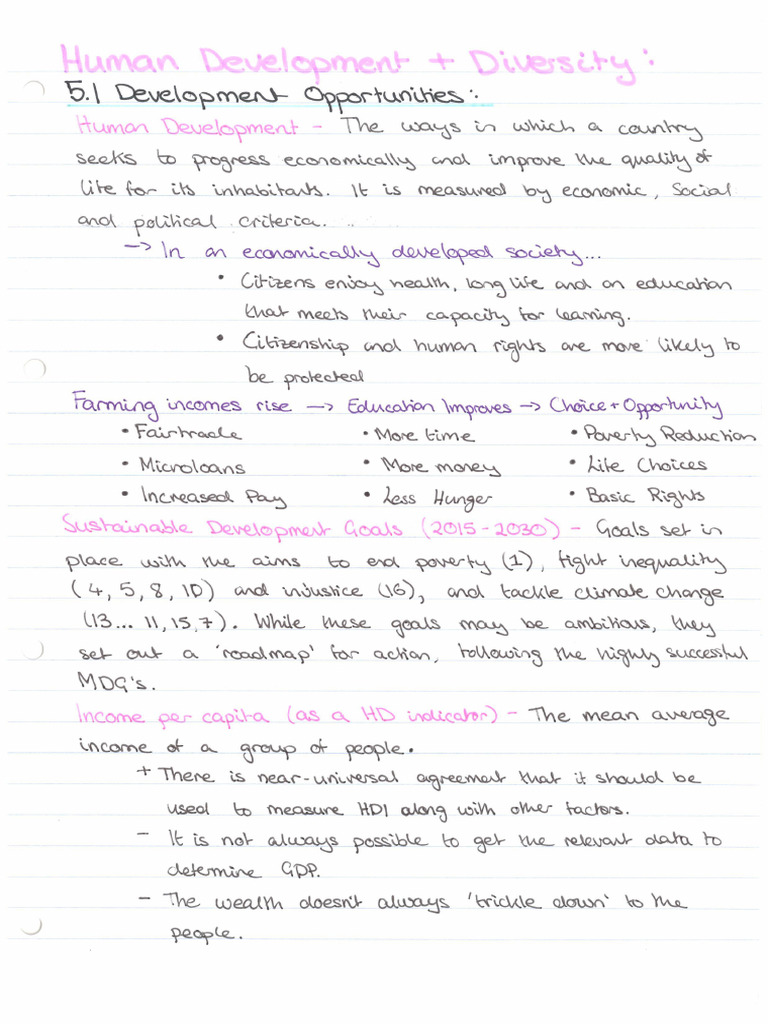 Human Development + Diversity:
5.1 Development Opportunities:
Human Development - The ways in which a country
seeks to progress economically and improve the quality of
life for its inhabitants. It is measured by economic, Social
and political criteria...
-> In an economically developed society...
• Citizens enjoy health, long life and an education
that meets their capacity for learning.
• Citizenship and human rights are more likely to
be protected
Farming incomes rise -> Education Improves -> Choice + Opportunity
• Fairtrade • More time • Poverty Reduction
• Microloans • More money • Life Choices
• Increased Pay • Less Hunger • Basic Rights
Sustainable Development Goals (2015-2030) - Goals set in
place with the aims to end poverty (1), fight inequality
(4, 5, 8, 10) and injustice (16), and tackle climate change
(13... 11, 15, 7). While these goals may be ambitious, they
set out a 'roadmap' for action, following the highly successful
MDG's.
Income per capita (as a HD indicator) - The mean average
income of a group of people.
+ There is near-universal agreement that it should be
used to measure HDI along with other factors.
- It is not always possible to get the relevant data to
determine GDP.
- The wealth doesn't always 'trickle down' to the
people.